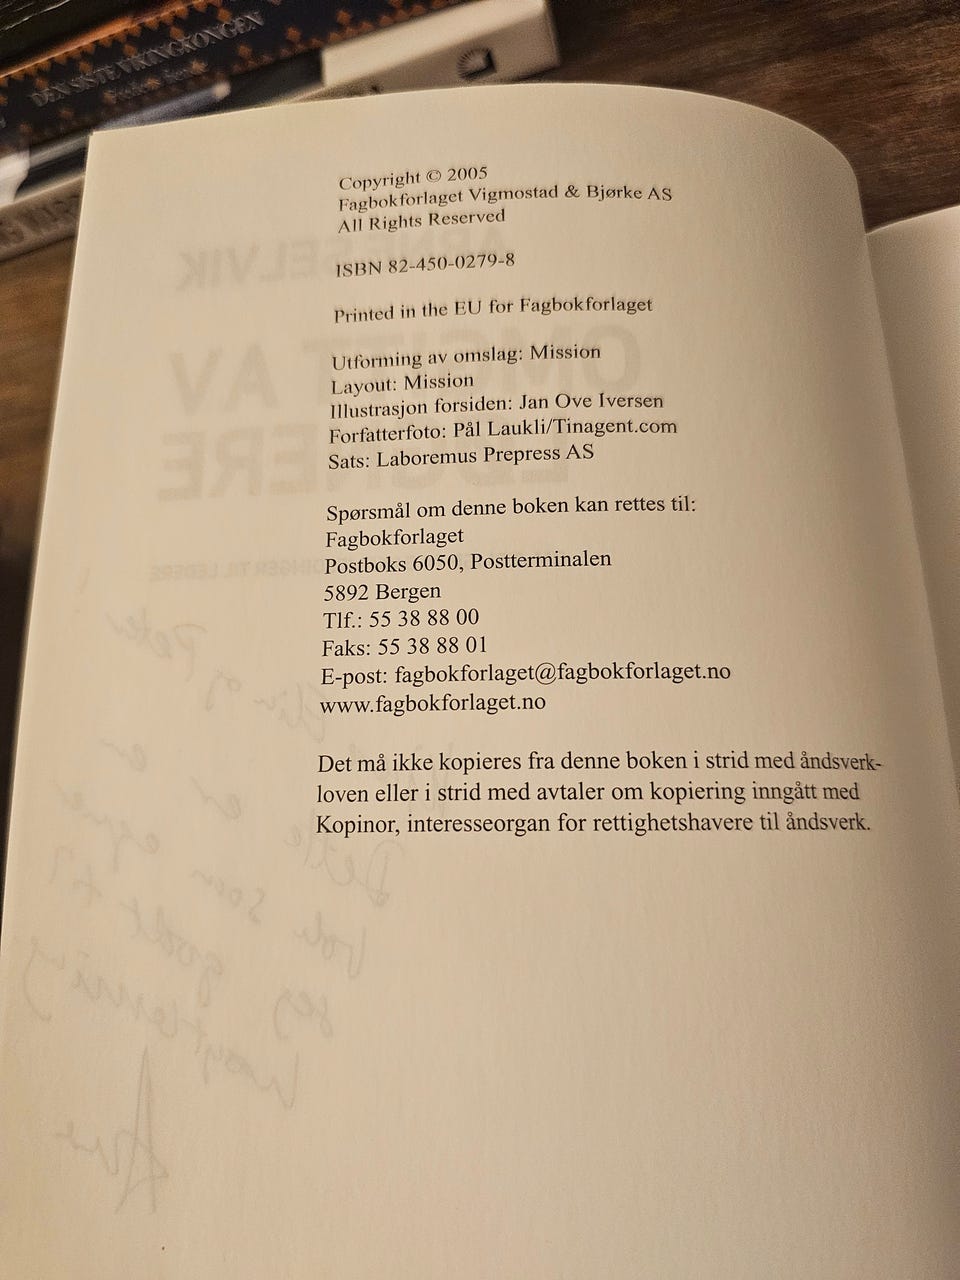 DEN SISTE VIKINGKONGEN
Copyright © 2005
Fagbokforlaget Vigmostad & Bjørke AS
All Rights Reserved
ISBN 82-450-0279-8
Printed in the EU for Fagbokforlaget
Utforming av omslag: Mission
Layout: Mission
Illustrasjon forsiden: Jan Ove Iversen
Forfatterfoto: Pål Laukli/Tinagent.com
Sats: Laboremus Prepress AS
Spørsmål om denne boken kan rettes til:
Fagbokforlaget
Postboks 6050, Postterminalen
5892 Bergen
Tlf.: 55 38 88 00
Faks: 55 38 88 01
E-post: fagbokforlaget@fagbokforlaget.no
www.fagbokforlaget.no
Det må ikke kopieres fra denne boken i strid med åndsverk-
loven eller i strid med avtaler om kopiering inngått med
Kopinor, interesseorgan for rettighetshavere til åndsverk.